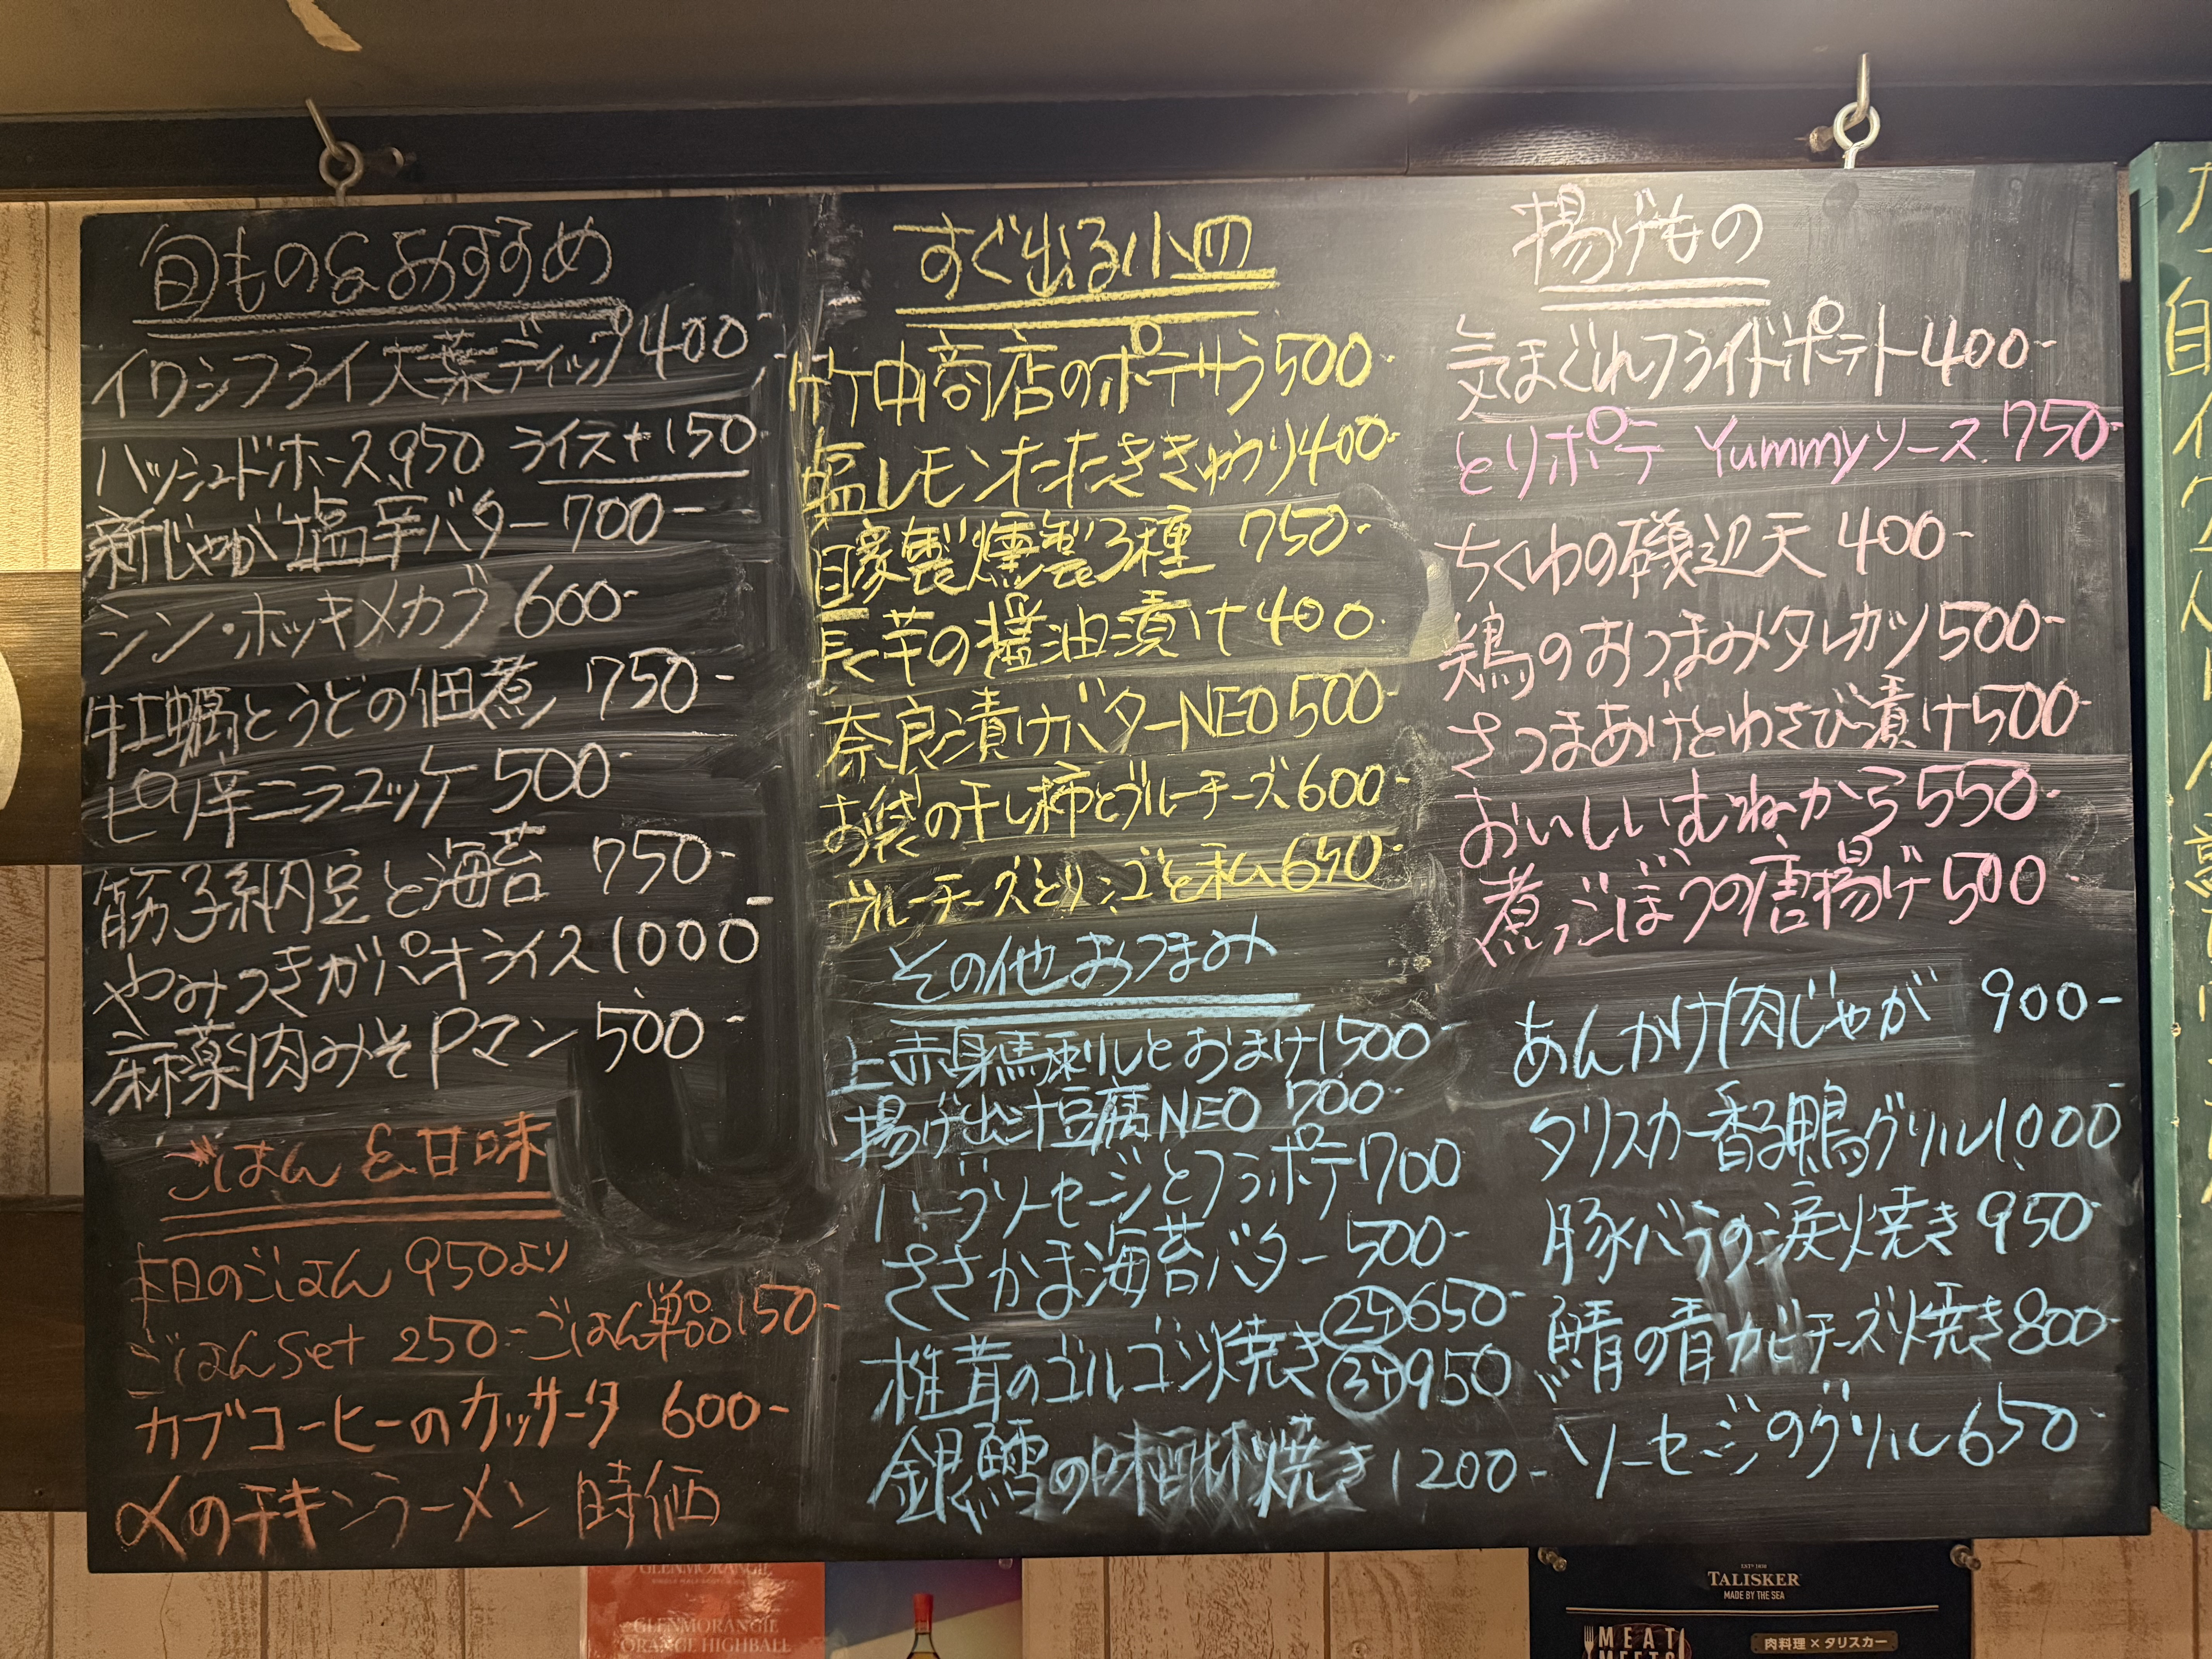 旬もの&おすすめ
イワシフライ大葉ディップ400-
ハッシュドホース950 ライス+150-
新じゃが塩辛バター700-
シン・ホッキメカブ600-
牡蠣とうどの佃煮 750-
ピリ辛ニラユッケ500-
筋子納豆と海苔 750-
やみつきガパオライス1000-
麻薬肉みそPマン500-
ごはん&甘味
本日のごはん 950より
ごはんset 250-ごはん単品150-
カブコーヒーのカッサータ 600-
〆のチキンラーメン 時価
すぐ出る小皿
竹中商店のポテサラ500-
塩レモンたたききゅうり400-
自家製燻製3種 750-
長芋の醤油漬け400-
奈良漬けバターNEO500-
お袋の干し柿とブルーチーズ600-
ブルーチーズとリンゴと私650-
その他おつまみ
上赤身馬刺しとおまけ1500-
揚げ出汁豆腐NEO 700-
ハーブソーセージとフラポテ700
ささかま海苔バター500-
椎茸のゴルゴンゾ焼き②ケ650-
③ケ950-
銀鱈の味醂焼き1200-
揚げもの
気まぐれフライドポテト400-
とりポテ Yummyソース 750-
ちくわの磯辺天 400-
鶏のおつまみタレカツ500-
さつまあげとわさび漬け500-
おいしいむねから550-
煮ごぼうの唐揚げ500-
あんかけ肉じゃが 900-
タリスカー香る鴨グリル1000-
豚バラの炭火焼き950-
鯖の青カビチーズ焼き800-
ソーセージのグリル650-
GLENMORANGIE
GLENMORANGIE
ORANGE HIGHBALL
TALISKER
MADE BY THE SEA
MEAT
MEETS
肉料理×タリスカー